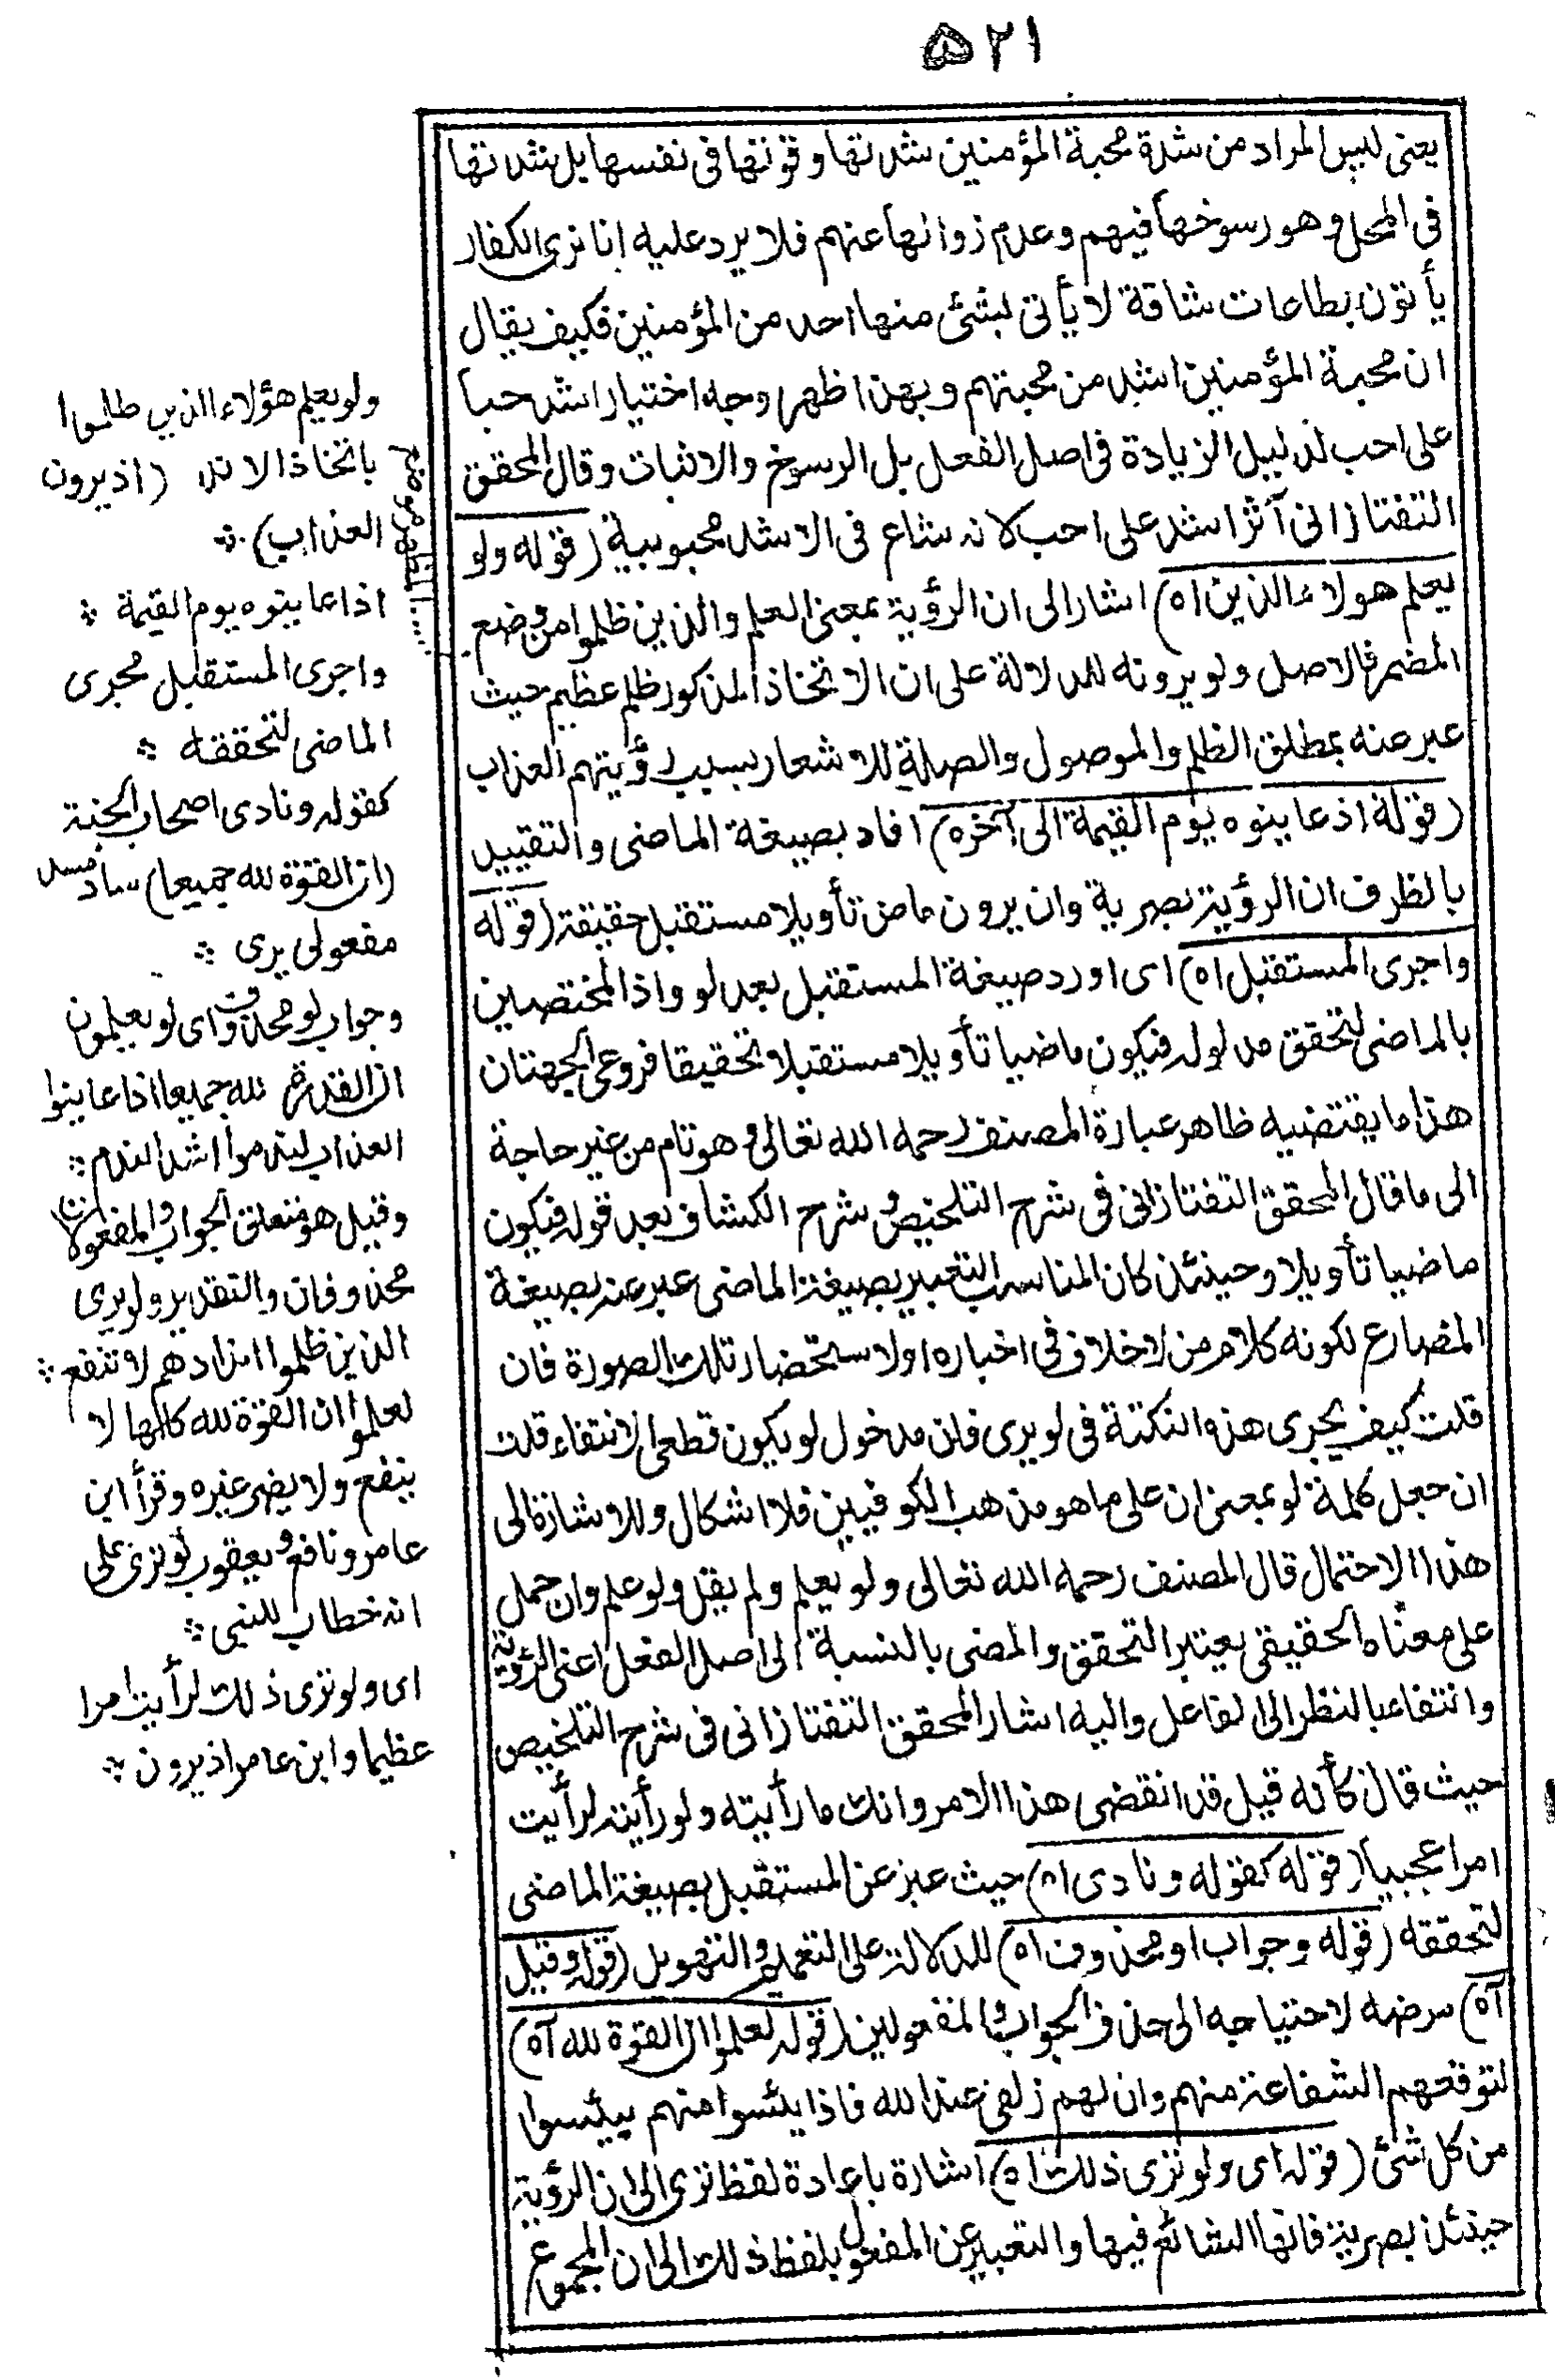 ٥٢١
يعنى ليس المراد من شدة محبة المؤمنين شدتها وقوتها فى نفسها بل شدتها
فى المحل وهو رسوخها فيهم وعدم زوالها عنهم فلا يرد عليه انا نرى الكفار
يأتون بطاعات شاقة لا يأتى لبشئ منها احد من المؤمنين فكيف يقال
ان محبة المؤمنين اشد من محبتهم وبهذا ظهر وجه اختيار اشد حبا
على احب لدليل الزيادة فى اصل الفعل بل الرسوخ والاثبات وقال المحقق
التفتازانى آثر اشد على احب لانه شاع فى الاشد محبوبية (قوله ولو
يعلم هولاء الذين اه) اشار الى ان الرؤية بمعنى العلم والذين ظلموا من وضع
المضمر فالاصل ولو يرونه للدلالة على ان الاتخاذ المذكور ظلم عظيم حيث
عبر عنه بمطلق الظلم والموصول والصلة للاشعار بسبب رؤيتهم العذاب
(قوله اذ عاينوه يوم القيمة الى آخره) افاد بصيغة الماضى والتقييد
بالظرف ان الرؤية بصرية وان يرون ماض تأويلا مستقبل حقيقة (قوله
واجرى المستقبل اه) اى اورد صيغة المستقبل بعد لو واذ المختصين
بالماضى لتحقق مدلوله فيكون ماضيا تأويلا مستقبلا تحقيقا فروعى الجهتان
هذا ما يقتضيه ظاهر عبارة المصنف رحمه الله تعالى وهو تام من غير حاجة
الى ما قال المحقق التفتازانى فى شرح التلخيص وشرح الكشاف بعد قوله فيكون
ماضيا تأويلا وحينئذ كان المناسب التعبير بصيغة الماضى عبر عنه بصيغة
المضارع لكونه كلام من لا خلاف فى اخباره او لاستحضار تلك الصورة فان
قلت كيف يجرى هذه النكتة فى لو يرى فان مدخول لو يكون قطعى الانتفاء قلت
ان جعل كلمة لو بمعنى ان على ما هو مذهب الكوفيين فلا اشكال وللاشارة الى
هذا الاحتمال قال المصنف رحمه الله تعالى ولو يعلم ولم يقل ولو علم وان حمل
على معناه الحقيقى يعتبر التحقق والمضى بالنسبة الى اصل الفعل اعنى الرؤية
وانتفاءها بالنظر الى الفاعل واليه اشار المحقق التفتازانى فى شرح التلخيص
حيث قال كأنه قيل قد انقضى هذا الامر وانك ما رأيته ولو رأيته لرأيت
امرا عجيبا (قوله كقوله ونادى اه) حيث عبر عن المستقبل بصيغة الماضى
لتحققه (قوله وجواب او محذوف اه) للدلالة على التعميم والتهويل (قوله وقيل
آه) مرضه لاحتياجه الى حذف الجواب والمفعولين (قوله لعلموا ان القوة لله آه)
لتوقعهم الشفاعة منهم وان لهم زلفى عند الله فاذا يئسوا منهم ييئسوا
من كل شئ (قوله اى ولو ترى ذلك اه) اشارة باعادة لفظ ترى الى ان الرؤية
حينئذ بصرية فانها الشائع فيها والتعبير عن المفعول بلفظ ذلك الى ان المجموع
ولو يعلم هؤلاء الذين ظلموا
باتخاذ الانداد (اذ يرون
العذاب) ∴
اذا عاينوه يوم القيمة ∴
واجرى المستقبل مجرى
الماضى لتحققه ∴
كقوله ونادى اصحاب الجنة
(ان القوة لله جميعا) ساد مسد
مفعولى يرى ∴
وجواب لو محذوف اى لو يعلمون
ان القدرة لله جميعا اذا عاينوا
العذاب لندموا اشد الندم ∴
وقيل هو متعلق الجواب والمفعولان
محذوفان والتقدير ولو يرى
الذين ظلموا اندادهم لا تنفع ∴
لعلموا ان القوة لله كلها لا
ينفع ولا يضر غيره وقرأ ابن
عامر ونافع ويعقوب لو ترى على
انه خطاب للنبى ∴
اى ولو ترى ذلك لرأيت امرا
عظيما وابن عامر اذ يرون ∴